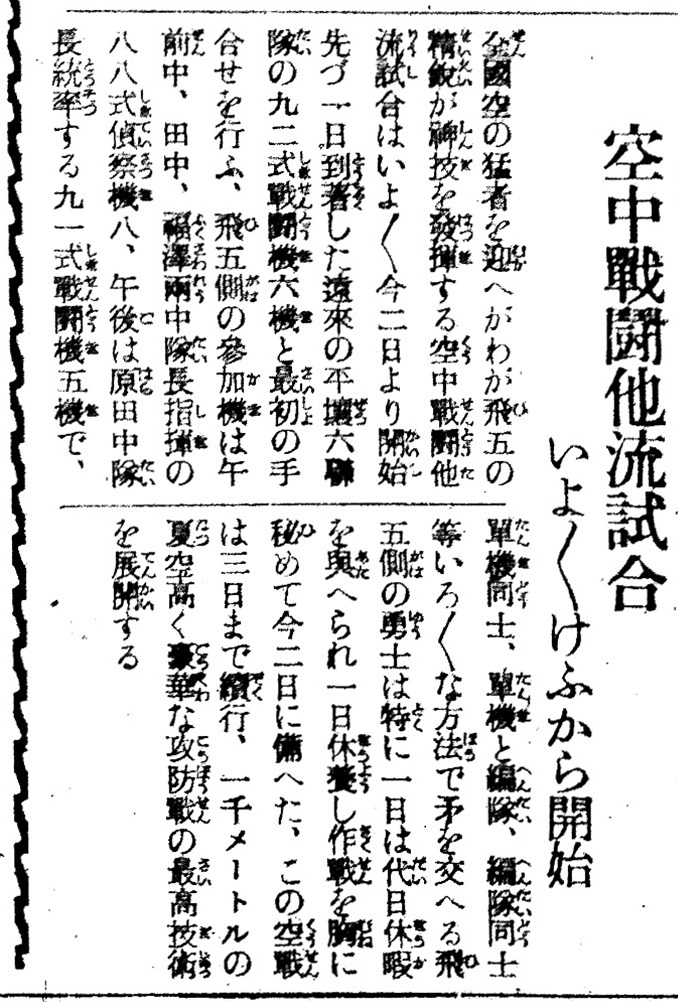 空中戰鬪他流試合
いよ〳〵けふから開始
全國空の猛者を迎へがわが飛五の
精鋭が神技を發揮する空中戰鬪他
流試合はいよ〳〵今二日より開始
先づ一日到着した遠來の平壤六聯
隊の九二式戰鬪機六機と最初の手
合せを行ふ、飛五側の參加機は午
前中、田中、福澤兩中隊長指揮の
八八式偵察機八、午後は原田中隊
長統率する九一式戰鬪機五機で、
單機同士、單機と編隊、編隊同士
等いろ〳〵な方法で矛を交へる飛
五側の勇士は特に一日は代日休暇
を與へられ一日休養し作戰を胸に
秘めて今二日に備へた、この空戰
は三日まで續行、一千メートルの
夏空高く豪華な攻防戰の最高技術
を展開する